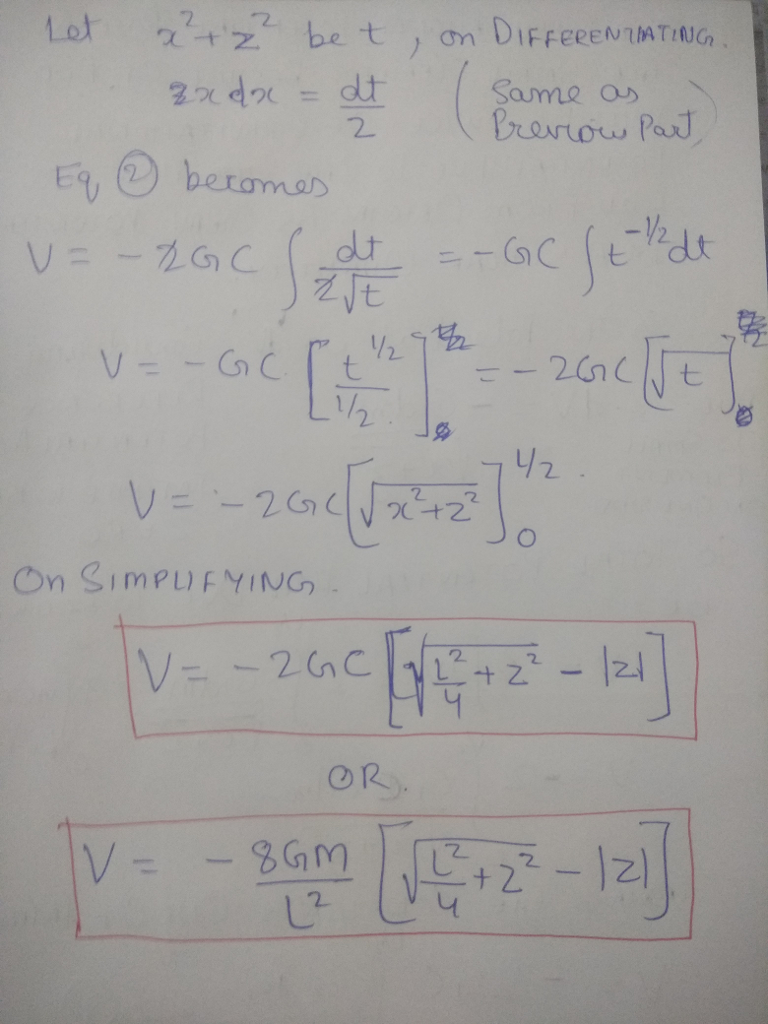 Let x² + z² be t, on DIFFERENTIATING.
x dx = dt/2 (Same as Previous Part)
Eq ② becomes
V = - 2GC ∫ dt/2√t = - GC ∫ t^-1/2 dt
V = - GC [t^1/2 / 1/2] = - 2GC [√t]
V = - 2GC [√x²+z²]₀^L/2
On SIMPLIFYING.
V = - 2GC [√L²/4 + z² - |z|]
OR.
V = - 8GM/L² [√L²/4 + z² - |z|]